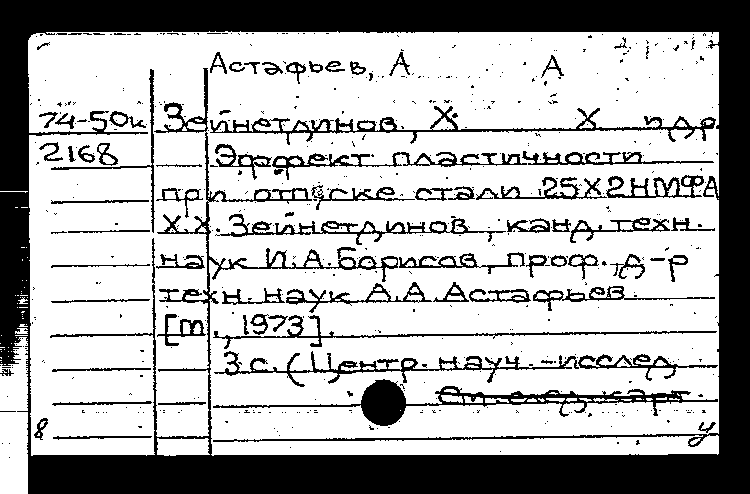 Астафьев, А А
74-50к Зейнетдинов, Х. Х и др.
2168 Эффект пластичности
при отпуске стали 25Х2НМФА
Х.Х. Зейнетдинов, канд. техн.
наук И.А. Борисов, проф., д-р
техн. наук А.А. Астафьев.
[m., 1973].
3 с. (Центр. науч.-исслед.
См. след. карт.
8 у